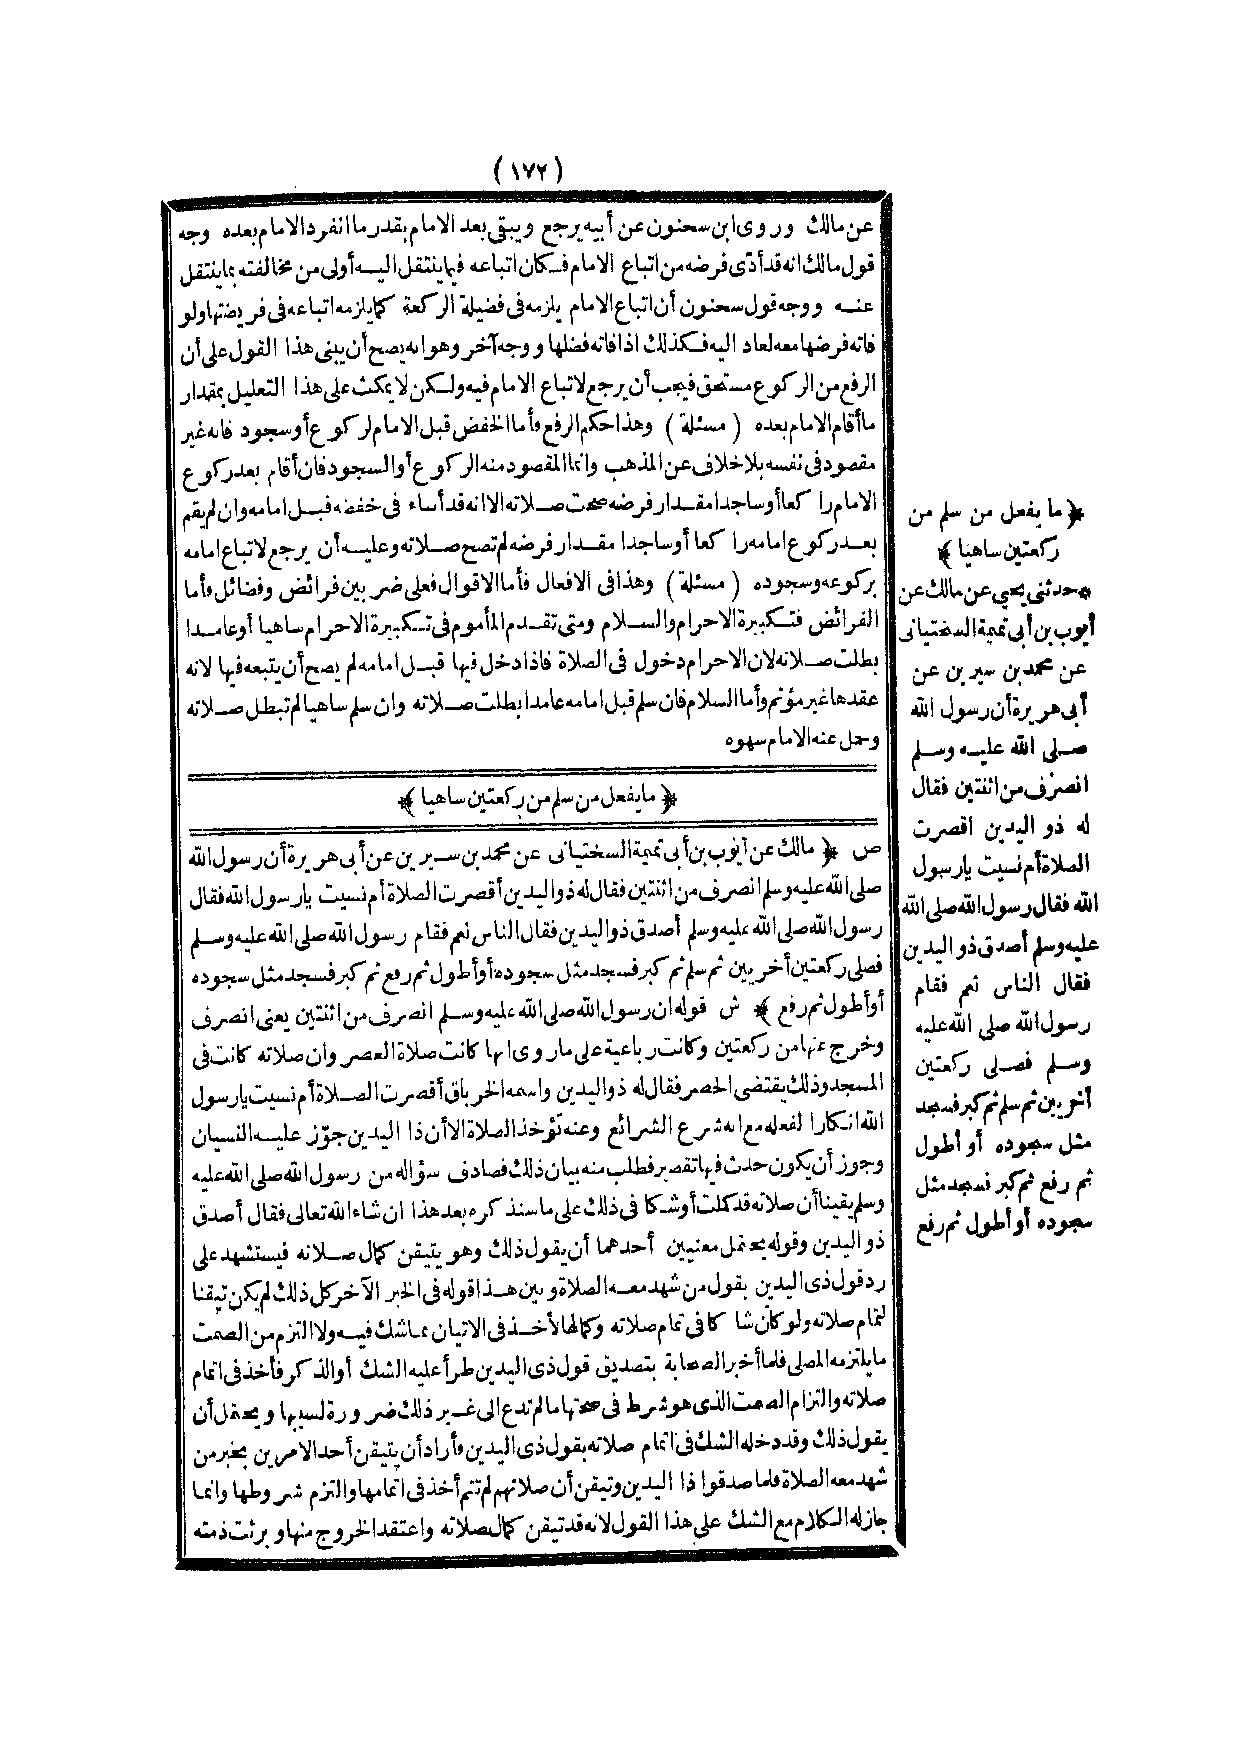 (١٧٢)
عن مالك وروى ابن سحنون عن أبيه يرجع ويبقى بعد الامام بقدر ما انفرد الامام بعده وجه
قول مالك انه قد أدّى فرضه من اتباع الامام فكان اتباعه فيما ينتقل اليه أولى من مخالفته بما ينتقل
عنه ووجه قول سحنون أن اتباع الامام يلزمه في فضيلة الركعة كما يلزمه اتباعه في فريضتها ولو
فاته فرضها معه لعاد اليه فكذلك اذا فاته فضلها ووجه آخر وهو انه يصح أن يبنى هذا القول على أن
الرفع من الركوع مستحق فيجب أن يرجع لاتباع الامام فيه ولكن لا يمكث على هذا التعليل بمقدار
ما أقام الامام بعده (مسئلة) وهذا حكم الرفع وأما الخفض قبل الامام لركوع أو سجود فانه غير
مقصود في نفسه بلا خلاف عن المذهب وانما المقصود منه الركوع أو السجود فان أقام بعد ركوع
الامام راكعا أو ساجدا مقدار فرضه صحت صلاته الا انه قد أساء في خفضه قبل امامه وان لم يقم
بعد ركوع امامه راكعا أو ساجدا مقدار فرضه لم تصح صلاته وعليه أن يرجع لاتباع امامه
بركوعه وسجوده (مسئلة) وهذا في الافعال فأما الاقوال فعلى ضربين فرائض وفضائل فأما
الفرائض فتكبيرة الاحرام والسلام ومتى تقدم المأموم في تكبيرة الاحرام ساهيا أو عامدا
بطلت صلاته لان الاحرام دخول في الصلاة فاذا دخل فيها قبل امامه لم يصح أن يتبعه فيها لانه
عقدها غير مؤتم وأما السلام فان سلم قبل امامه عامدا بطلت صلاته وان سلم ساهيا لم تبطل صلاته
وحمل عنه الامام سهوه
﴿ ما يفعل من سلم من ركعتين ساهيا ﴾
ص ﴿ مالك عن أيوب بن أبي تميمة السختياني عن محمد بن سيرين عن أبي هريرة أن رسول الله
صلى الله عليه وسلم انصرف من اثنتين فقال له ذو اليدين أقصرت الصلاة أم نسيت يا رسول الله فقال
رسول الله صلى الله عليه وسلم أصدق ذو اليدين فقال الناس نعم فقام رسول الله صلى الله عليه وسلم
فصلى ركعتين أخريين ثم سلم ثم كبر فسجد مثل سجوده أو أطول ثم رفع ثم كبر فسجد مثل سجوده
أو أطول ثم رفع ﴾ ش قوله ان رسول الله صلى الله عليه وسلم انصرف من اثنتين يعنى انصرف
وخرج عنها من ركعتين وكانت رباعية على ما روى انها كانت صلاة العصر وان صلاته كانت في
المسجد وذلك يقتضى الحصر فقال له ذو اليدين واسمه الخرباق أقصرت الصلاة أم نسيت يا رسول
الله انكارا لفعله مع انه شرع الشرائع وعنه تؤخذ الصلاة الا أن ذا اليدين جوّز عليه النسيان
وجوز أن يكون حدث فيها تقصير فطلب منه بيان ذلك فصادف سؤاله من رسول الله صلى الله عليه
وسلم يقينا أن صلاته قد كملت أو شكا في ذلك على ما سنذكره بعد هذا ان شاء الله تعالى فقال أصدق
ذو اليدين وقوله يحتمل معنيين أحدهما أن يقول ذلك وهو يتيقن كمال صلاته فيستشهد على
رد قول ذى اليدين بقول من شهد معه الصلاة وبين هذا قوله في الخبر الآخر كل ذلك لم يكن تيقنا
لتمام صلاته ولو كان شاكا في تمام صلاته وكمالها لأخذ في الاتيان بما شك فيه ولالتزم من الصمت
ما يلتزمه المصلى فلما أخبر الصحابة بتصديق قول ذى اليدين طرأ عليه الشك أو الذكر فأخذ في اتمام
صلاته والتزام الصمت الذى هو شرط في صحتها ما لم تدع الى غير ذلك ضرورة لسببها ويحتمل أن
يقول ذلك وقد دخله الشك في اتمام صلاته بقول ذى اليدين فأراد أن يتيقن أحد الامرين بخبر من
شهد معه الصلاة فلما صدقوا ذا اليدين وتيقن أن صلاتهم لم تتم أخذ في اتمامها والتزم شروطها وانما
جاز له الكلام مع الشك على هذا القول لانه قد تيقن كمال صلاته واعتقد الخروج منها وبرئت ذمته
﴿ ما يفعل من سلم من
ركعتين ساهيا ﴾
*حدثني يحيى عن مالك عن
أيوب بن أبي تميمة السختياني
عن محمد بن سيرين عن
أبي هريرة أن رسول الله
صلى الله عليه وسلم
انصرف من اثنتين فقال
له ذو اليدين اقصرت
الصلاة أم نسيت يا رسول
الله فقال رسول الله صلى الله
عليه وسلم أصدق ذو اليدين
فقال الناس نعم فقام
رسول الله صلى الله عليه
وسلم فصلى ركعتين
أخريين ثم سلم ثم كبر فسجد
مثل سجوده أو أطول
ثم رفع ثم كبر فسجد مثل
سجوده أو أطول ثم رفع